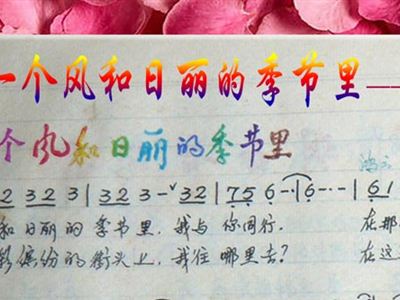 一个风和日丽的季节里
个风和日丽的季节里
2 32 3 | 32 3 - ˅ 32 | 75 6 - - | 6 - - - | 61
和日丽的季节里，我与你同行． 在那
彩缤纷的街头上，我往哪里去？ 在这